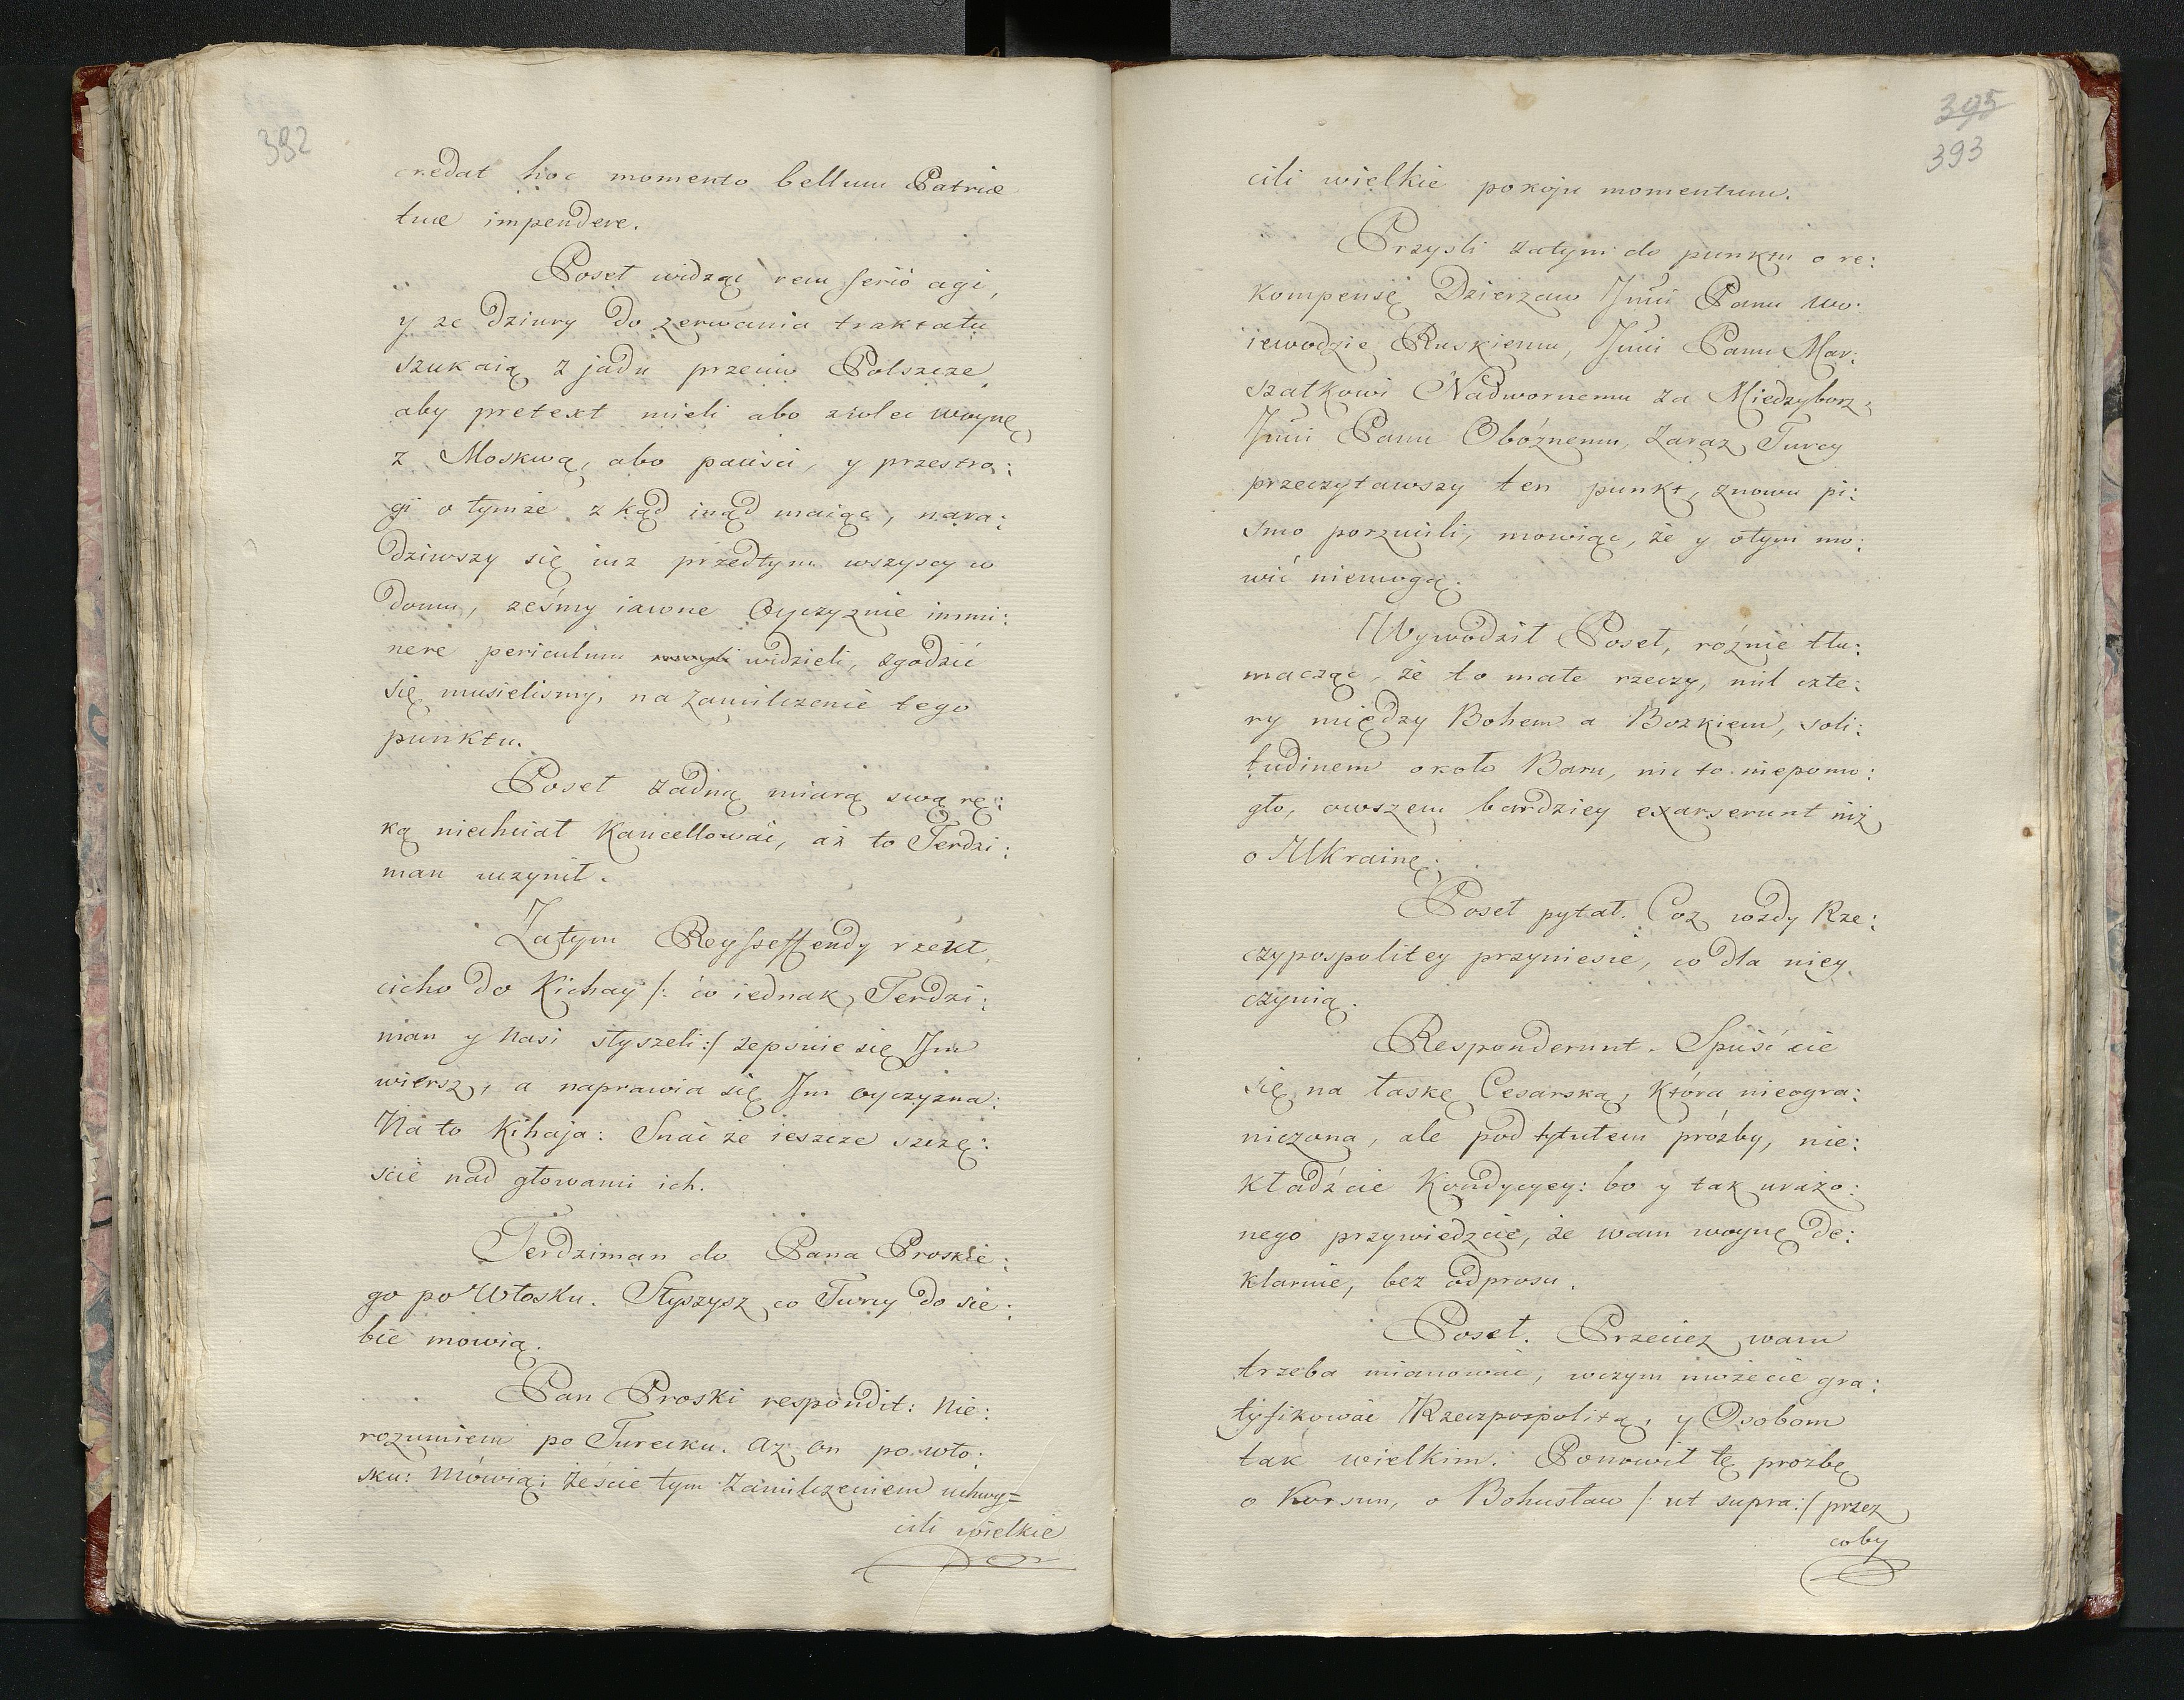 392
credat hoc momento bellum Patriæ
tuæ impendere.
Poseł widząc rem serió agi,
y ze dziury do zerwania traktatu
szukaią z jadu przeciw Polszcze,
aby pretext mieli abo zwlec woynę
z Moskwą, abo paciści, y przestro:
gi o tymże z kąd inąd maiąc, nara:
dziwszy się iuz przedtym wszyscy w
domu, ześmy iawne Oyczyznie immi:
nere periculum widzieli, zgodzić
się musielismy, na zamilczenie tego
punktu.
Poseł zadną miarą swą rę:
ką niechciał Kancellować, aż to Terdzi:
man uczynił.
Zatym Reysseffendy rzekł
cicho do Kichay /: co iednak Terdzi:
man y nasi słyszeli :/ zepsuie się Im
wiersz, a naprawia się Im oyczyzna:
Na to Kihaja: Snać że ieszcze szczę:
scie nad głowami ich.
Terdziman do Pana Proskie:
go po Włosku. Słyszysz co Turcy do sie:
bie mowią.
Pan Proski respondit: Nie:
rozumiem po Turecku. Az on po wło:
sku: Mówią: żeście tym zamilczeniem uchwy=
cili wielkie
395
393
cili wielkie pokoju momentum.
Przyszli zatym do punktu o re:
kompensię Dzierzaw Jmci Panu Wo:
iewodzie Ruskiemu, Jmci Panu Mar:
szałkowi Nadwornemu za Miedzyborz,
Jmci Panu Obóźnemu, zaraz Turcy
przeczytawszy ten punkt, znowu pi:
smo porzucili, mowiąc, że y otym mo:
wić niemogą.
Wywodził Poseł, rożnie tłu:
macząc, że to małe rzeczy, mil czte:
ry między Bohem a Bozkiem, soli:
tudinem około Baru, nic to niepomo:
gło, owszem bardziey exarserunt niż
o Ukrainę.
Poseł pytał. Coz wzdy Rze:
czypospolitey przyniesie, co dla niey
czynią.
Responderunt. Spuść cie
się na łaskę Cesarską, która nieogra:
niczona, ale pod tytułem próżby, nie:
kładźcie Kondycyey: bo y tak urażo:
nego przywiedzcie, że wam woynę de:
klaruie, bez odprosu.
Poseł. Przeciez wam
trzeba mianować, wczym możecie gra:
tyfikować Rzeczpospolitą, y Osobom
tak wielkim. Ponowił tę prozbę
o Korsun, o Bohusław /: ut supra :/ przez
coby